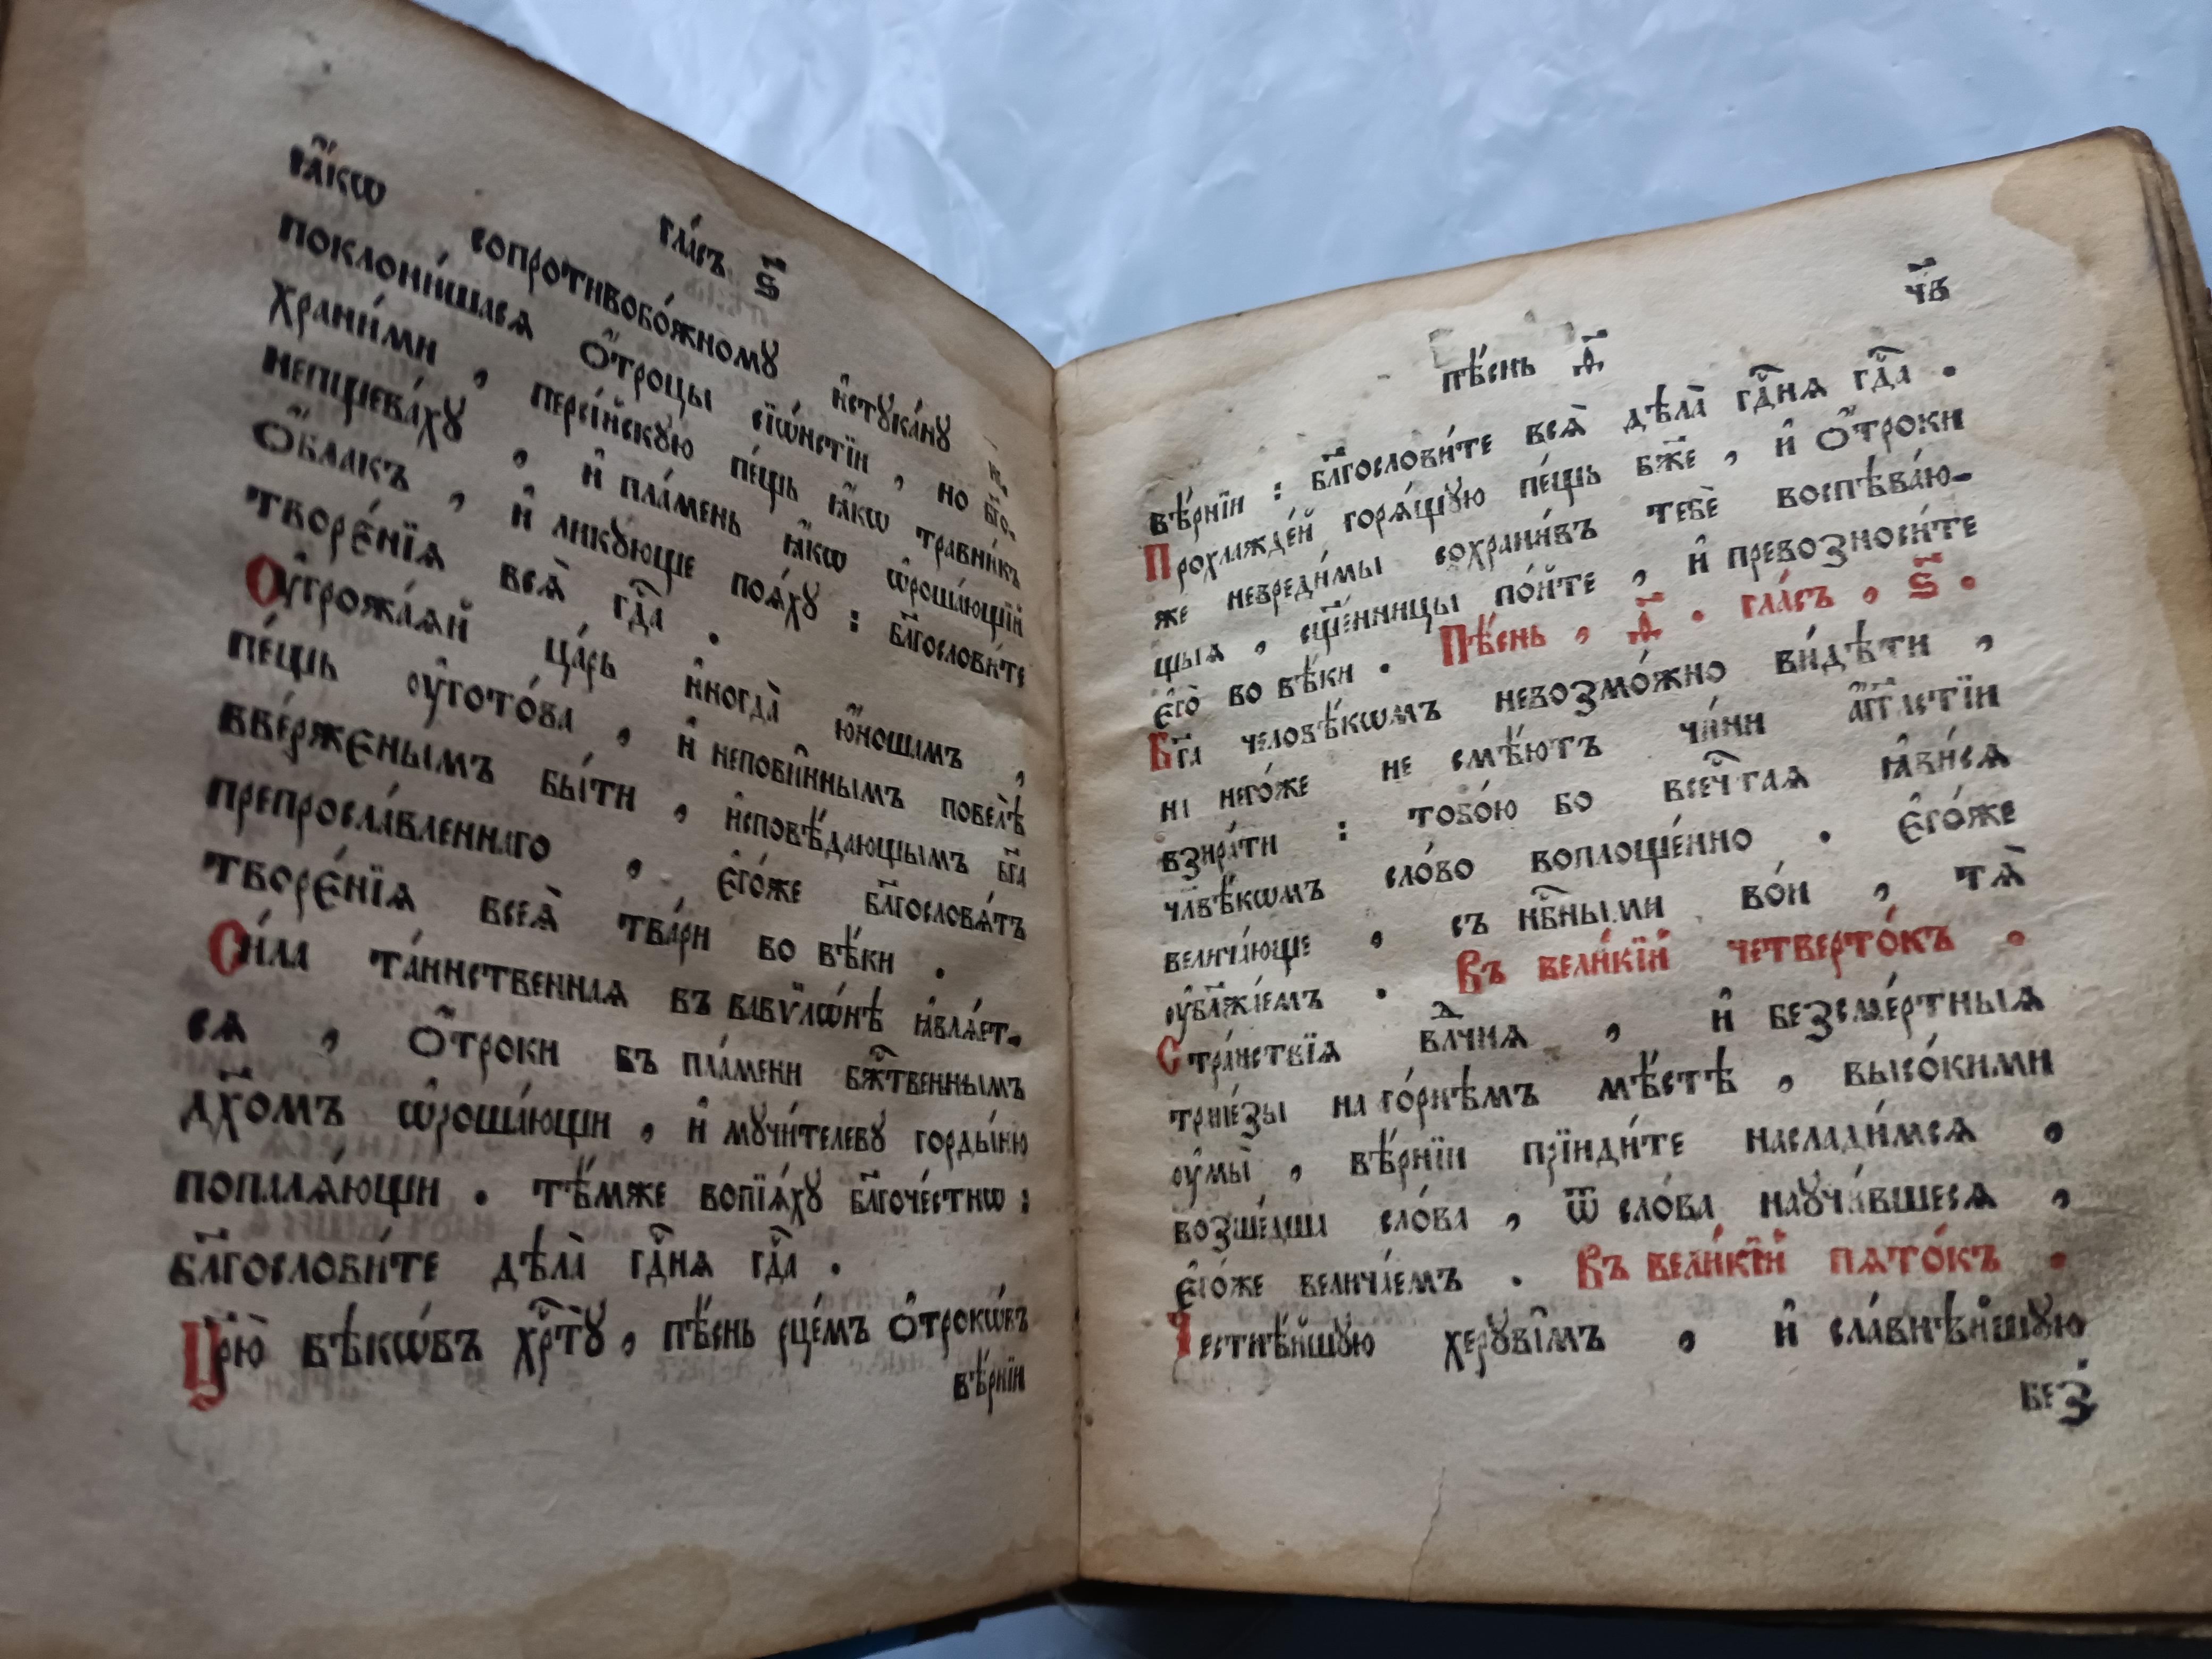 гла́съ ѕ҃
ꙗ҆́кѡ сопротивобо́жному и҆стꙋка́нꙋ н.
поклони́шасѧ ѻ҆́троцы сїѡ́нстїи , но бг҃о-
храни́ми , персі́йскую пе́щь ꙗ҆́кѡ травни́къ
непщева́хꙋ , и҆ пла́мень ꙗ҆́кѡ ѡ҆роша́ющїй
ѻ҆́блакъ , и҆ ликꙋюще поѧ́хꙋ : бл҃гослови́те
творе́нїѧ всѧ̀ гд҃а .
Оу҆грожа́ѧй ца́рь и҆ногда̀ ю҆́ношамъ ,
пе́щь оу҆гото́ва , и҆ непови̑ннымъ повелѣ̀
вве́рженымъ бы́ти , и҆сповѣ́дающымъ бг҃а
препросла́вленнаго , є҆го́же бл҃гословѧ́тъ
творе́нїѧ всѧ̀ тва́ри во вѣ́ки .
Си́ла та́инственнаѧ въ вавѷлѡ́нѣ ꙗ҆влѧ́ет-
сѧ , ѻ҆́троки въ пла́мени бж҃твеннымъ
дх҃омъ ѡ҆роша́ющи , и҆ мꙋчи́телевꙋ горды́ню
поплалѧ́ющи . тѣ́мже вопїѧ́хꙋ бл҃гоче́стнѡ :
бл҃гослови́те дѣла̀ гдⷭ҇нѧ гд҃а .
Цр҃ю̀ вѣкѡ́въ хрⷭ҇тꙋ̀ , пѣ́снь рце́мъ ѻ҆́трокѡ́въ
вѣ́рнїи
пѣ́снь д҃
ч҃в
вѣ́рнїи : бл҃гослови́те всѧ̀ дѣла̀ гдⷭ҇нѧ гд҃а .
Прохлажде́й горѧ́щꙋю пе́щь бж҃е , и҆ ѻ҆́троки
же невреди́мы сохрани́въ тебѐ воспѣва́ю-
щыѧ , сщ҃е́нницы по́йте , и҆ превозноси́те
є҆го̀ во вѣ́ки . Пѣ́снь , д҃ . гла́съ , ѕ҃ .
Бг҃а человѣ́кѡмъ невозмо́жно ви́дѣти ,
на него́же не смѣ́ютъ чи́ни а҆́гг҃лстїи
взира́ти : тобо́ю бо всечⷭ҇таѧ ꙗ҆ви́сѧ
члв҃ѣ́кѡмъ сло́во воплоще́нно . є҆го́же
велича́юще , съ нбⷭ҇ными во́и , тѧ̀
оу҆бл҃жа́емъ . Въ вели́кїй четверто́къ .
Стра́нствїѧ влⷣчнѧ , и҆ безсме́ртныѧ
трапе́зы на го́рнѣмъ мѣ́стѣ , высо́кими
оу҆мы̀ , вѣ́рнїи прїиди́те наслади́мсѧ ,
возше́дша сло́ва , ѿ сло́ва наꙋча́вшесѧ ,
є҆го́же велича́емъ . Въ вели́кїй пѧто́къ .
Честнѣ́йшꙋю херꙋві̑мъ , и҆ сла́внѣйшꙋю
без̾